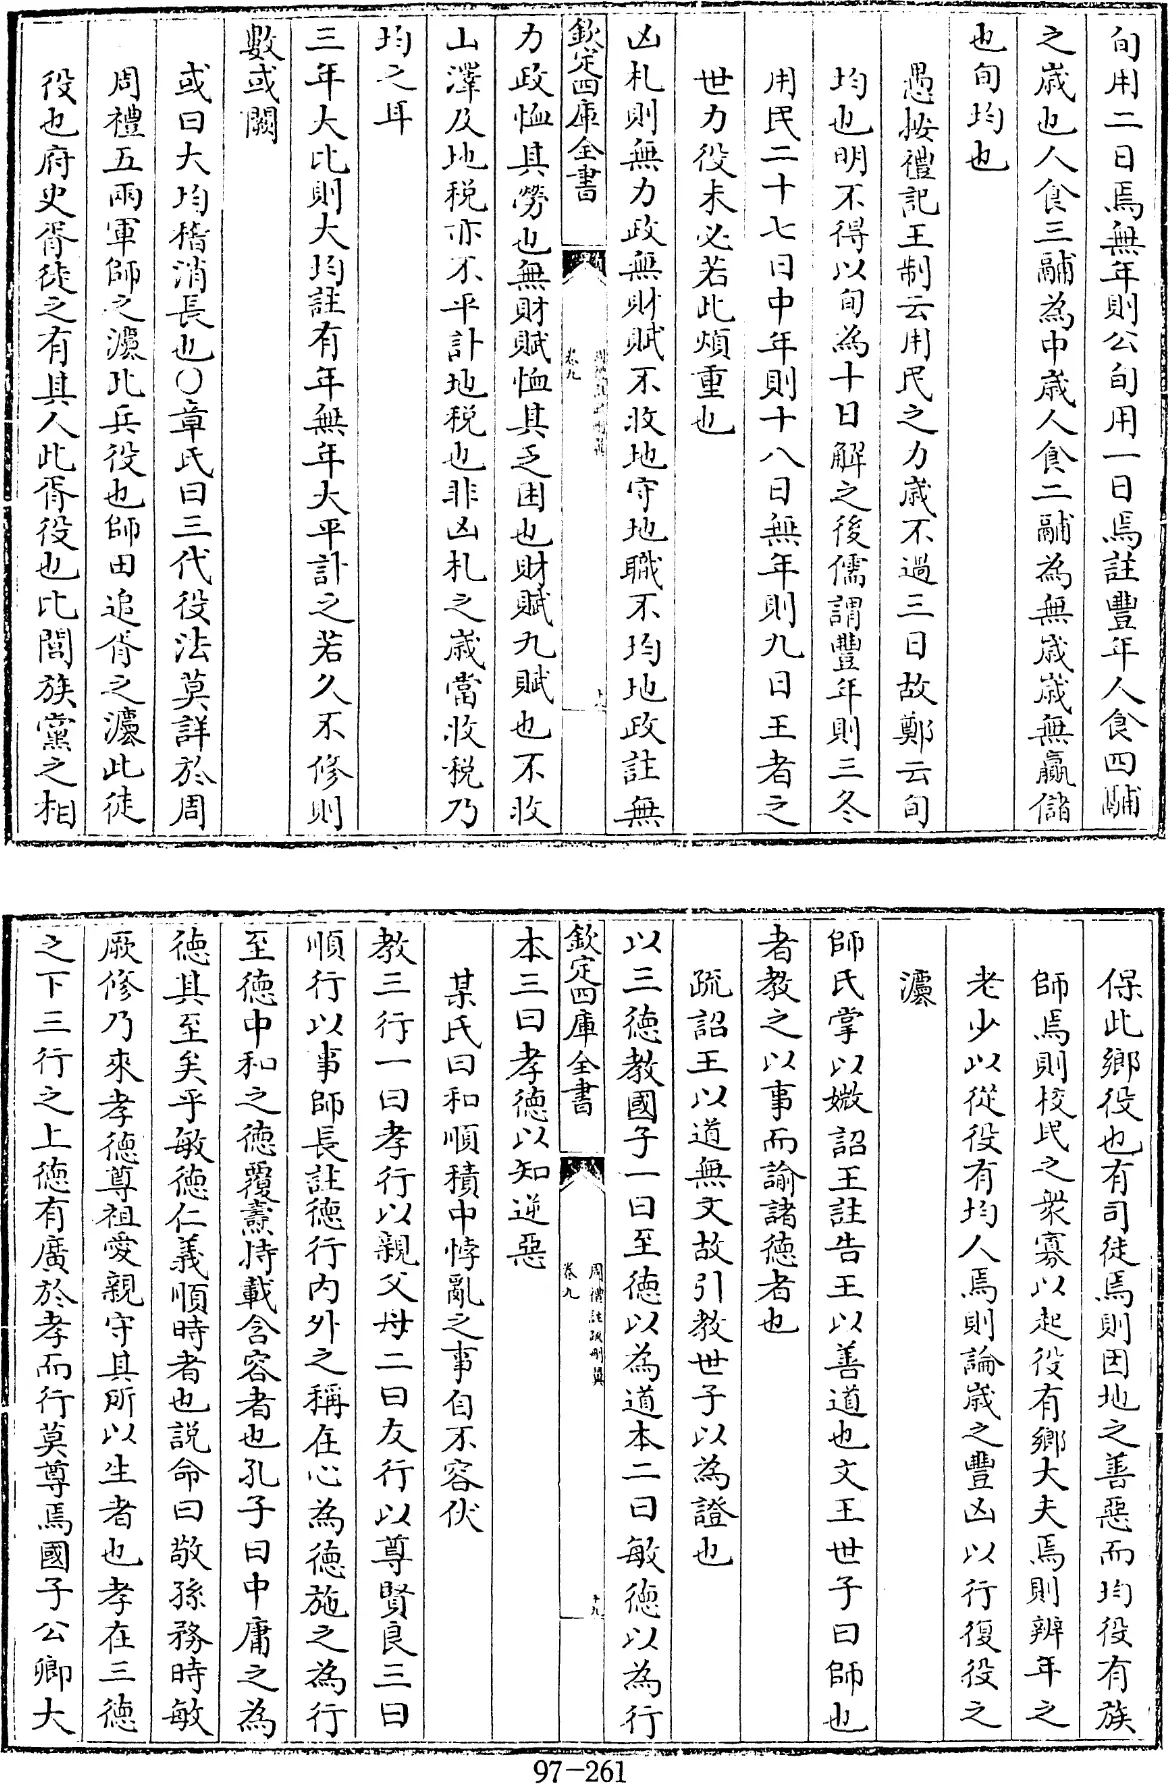 旬用二日焉無年則公旬用一日焉註豐年人食四鬴
之歳也人食三鬴為中歳人食二鬴為無歳歳無贏儲
也旬均也
愚按禮記王制云用民之力歳不過三日故鄭云旬
均也明不得以旬為十日解之後儒謂豐年則三冬
用民二十七日中年則十八日無年則九日王者之
世力役未必若此煩重也
凶札則無力政無財賦不收地守地職不均地政註無
欽定四庫全書
卷九
力政恤其勞也無財賦恤其乏困也財賦九賦也不收
山澤及地税亦不平計地税也非凶札之歳當收税乃
均之耳
三年大比則大均註有年無年大平計之若久不修則
數或闕
或曰大均稽消長也〇章氏曰三代役法莫詳於周
周禮五兩軍師之灋此兵役也師田追胥之灋此徒
役也府史胥徒之有其人此胥役也比閭族黨之相
保此鄉役也有司徒焉則因地之善惡而均役有族
師焉則校民之衆寡以起役有鄉大夫焉則辨年之
老少以從役有均人焉則論歳之豐凶以行復役之
灋
師氏掌以媺詔王註告王以善道也文王世子曰師也
者教之以事而諭諸德者也
疏詔王以道無文故引教世子以為證也
以三德教國子一曰至德以為道本二曰敏德以為行
欽定四庫全書
周禮註疏刪翼
卷九
十九
本三曰孝德以知逆惡
某氏曰和順積中悖亂之事自不容伏
教三行一曰孝行以親父母二曰友行以尊賢良三曰
順行以事師長註德行内外之稱在心為德施之為行
至德中和之德覆燾持載含容者也孔子曰中庸之為
德其至矣乎敏德仁義順時者也説命曰敬孫務時敏
厥修乃來孝德尊祖愛親守其所以生者也孝在三德
之下三行之上德有廣於孝而行莫尊焉國子公卿大
97-261